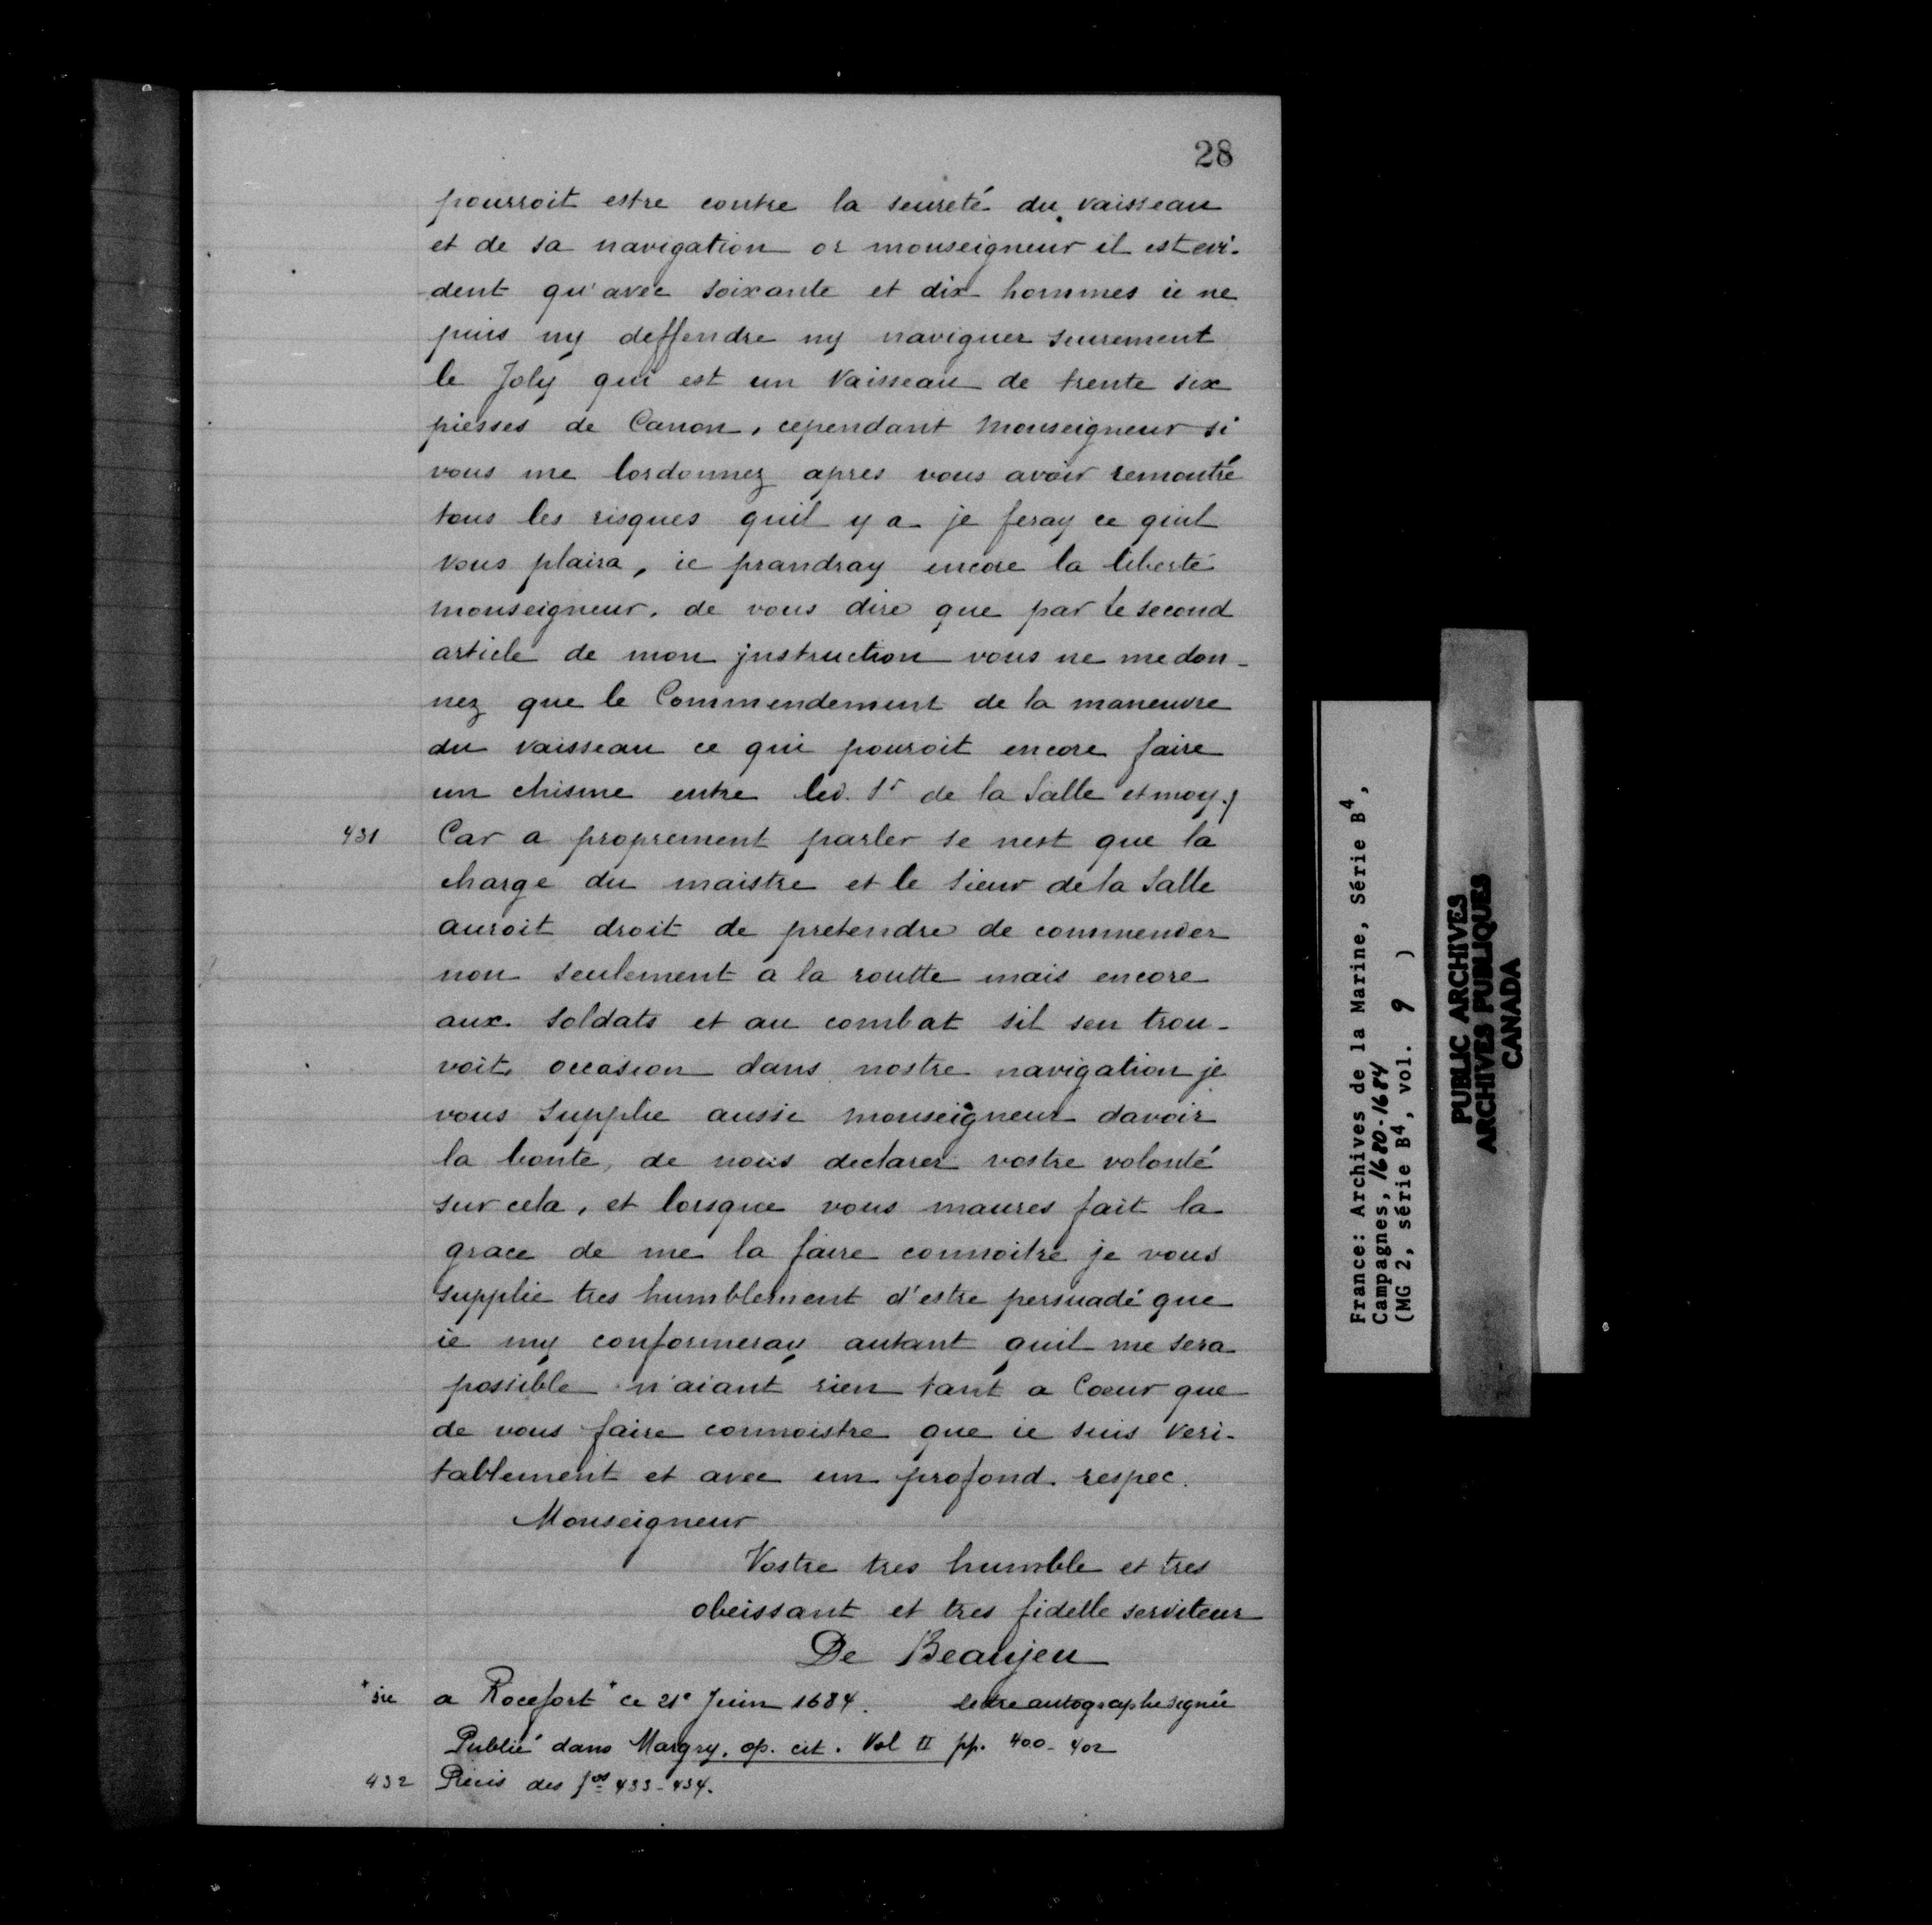 28
pourroit estre contre la seureté du vaisseau
et de sa navigation or monseigneur il est evi-
dent qu'avec soixante et dix hommes ie ne
puis ny deffendre ny naviguer seurement
le Joly qui est un Vaisseau de trente six
piesses de Canon, cependant Monseigneur si
vous me lordonnez apres vous avoir remontré
tous les risques quil y a je feray ce quil
vous plaira, ie prandray encore la liberté
monseigneur, de vous dire que par le second
article de mon jnstruction vous ne me don-
nez que le Commendement de la maneuvre
du vaisseau ce qui pouroit encore faire
un chisme entre led. Sr de la Salle et moy.)
431 Car a proprement parler se nest que la
charge du maistre et le sieur de la Salle
auroit droit de pretendre de commender
non seulement a la routte mais encore
aux soldats et au combat sil sen trou-
voit occasion dans nostre navigation je
vous supplie aussi monseigneur davoir
la bonte, de nous declarer vostre volonté
sur cela, et lorsque vous maures fait la
grace de me la faire connoitre je vous
supplie tres humblement d'estre persuadé que
ie my conformeray autant quil me sera
possible n'aiant rien tant a Coeur que
de vous faire connoistre que ie suis Veri-
tablement et avec un profond respec.
Monseigneur
Vostre tres humble et tres
obeissant et tres fidelle serviteur
De Beaujeu
*sic a Rocefort* ce 21e Juin 1684. lettre autographe signée
Publié dans Margry, op. cit. Vol II pp. 400-402
432 Précis des fos 433-434.
France: Archives de la Marine, Série B4,
Campagnes, 1680-1684
(MG 2, série B4, vol. 9 )
PUBLIC ARCHIVES
ARCHIVES PUBLIQUES
CANADA